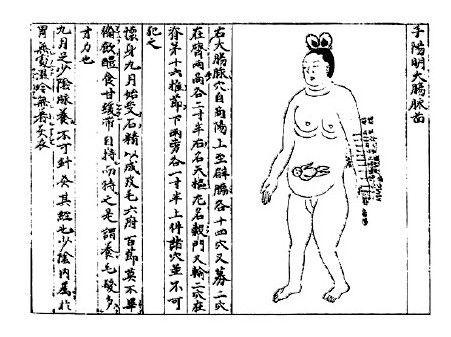 手陽明大腸脉
右大腸脉穴自商陽上至臂臑各十四穴又募二穴
在齊兩旁各二寸半右名天樞左名穀門又輸二穴在
脊第十六椎節下兩旁各一寸半上件諸穴並不可
犯之
懷身九月始受石精以成皮毛六府百節莫不畢
備飲醴食甘緩帶自持而待之是謂養毛髮多
才力也
九月足少陰脉養不可針灸其經也少陰内屬於
腎無處濕冷無着炙衣